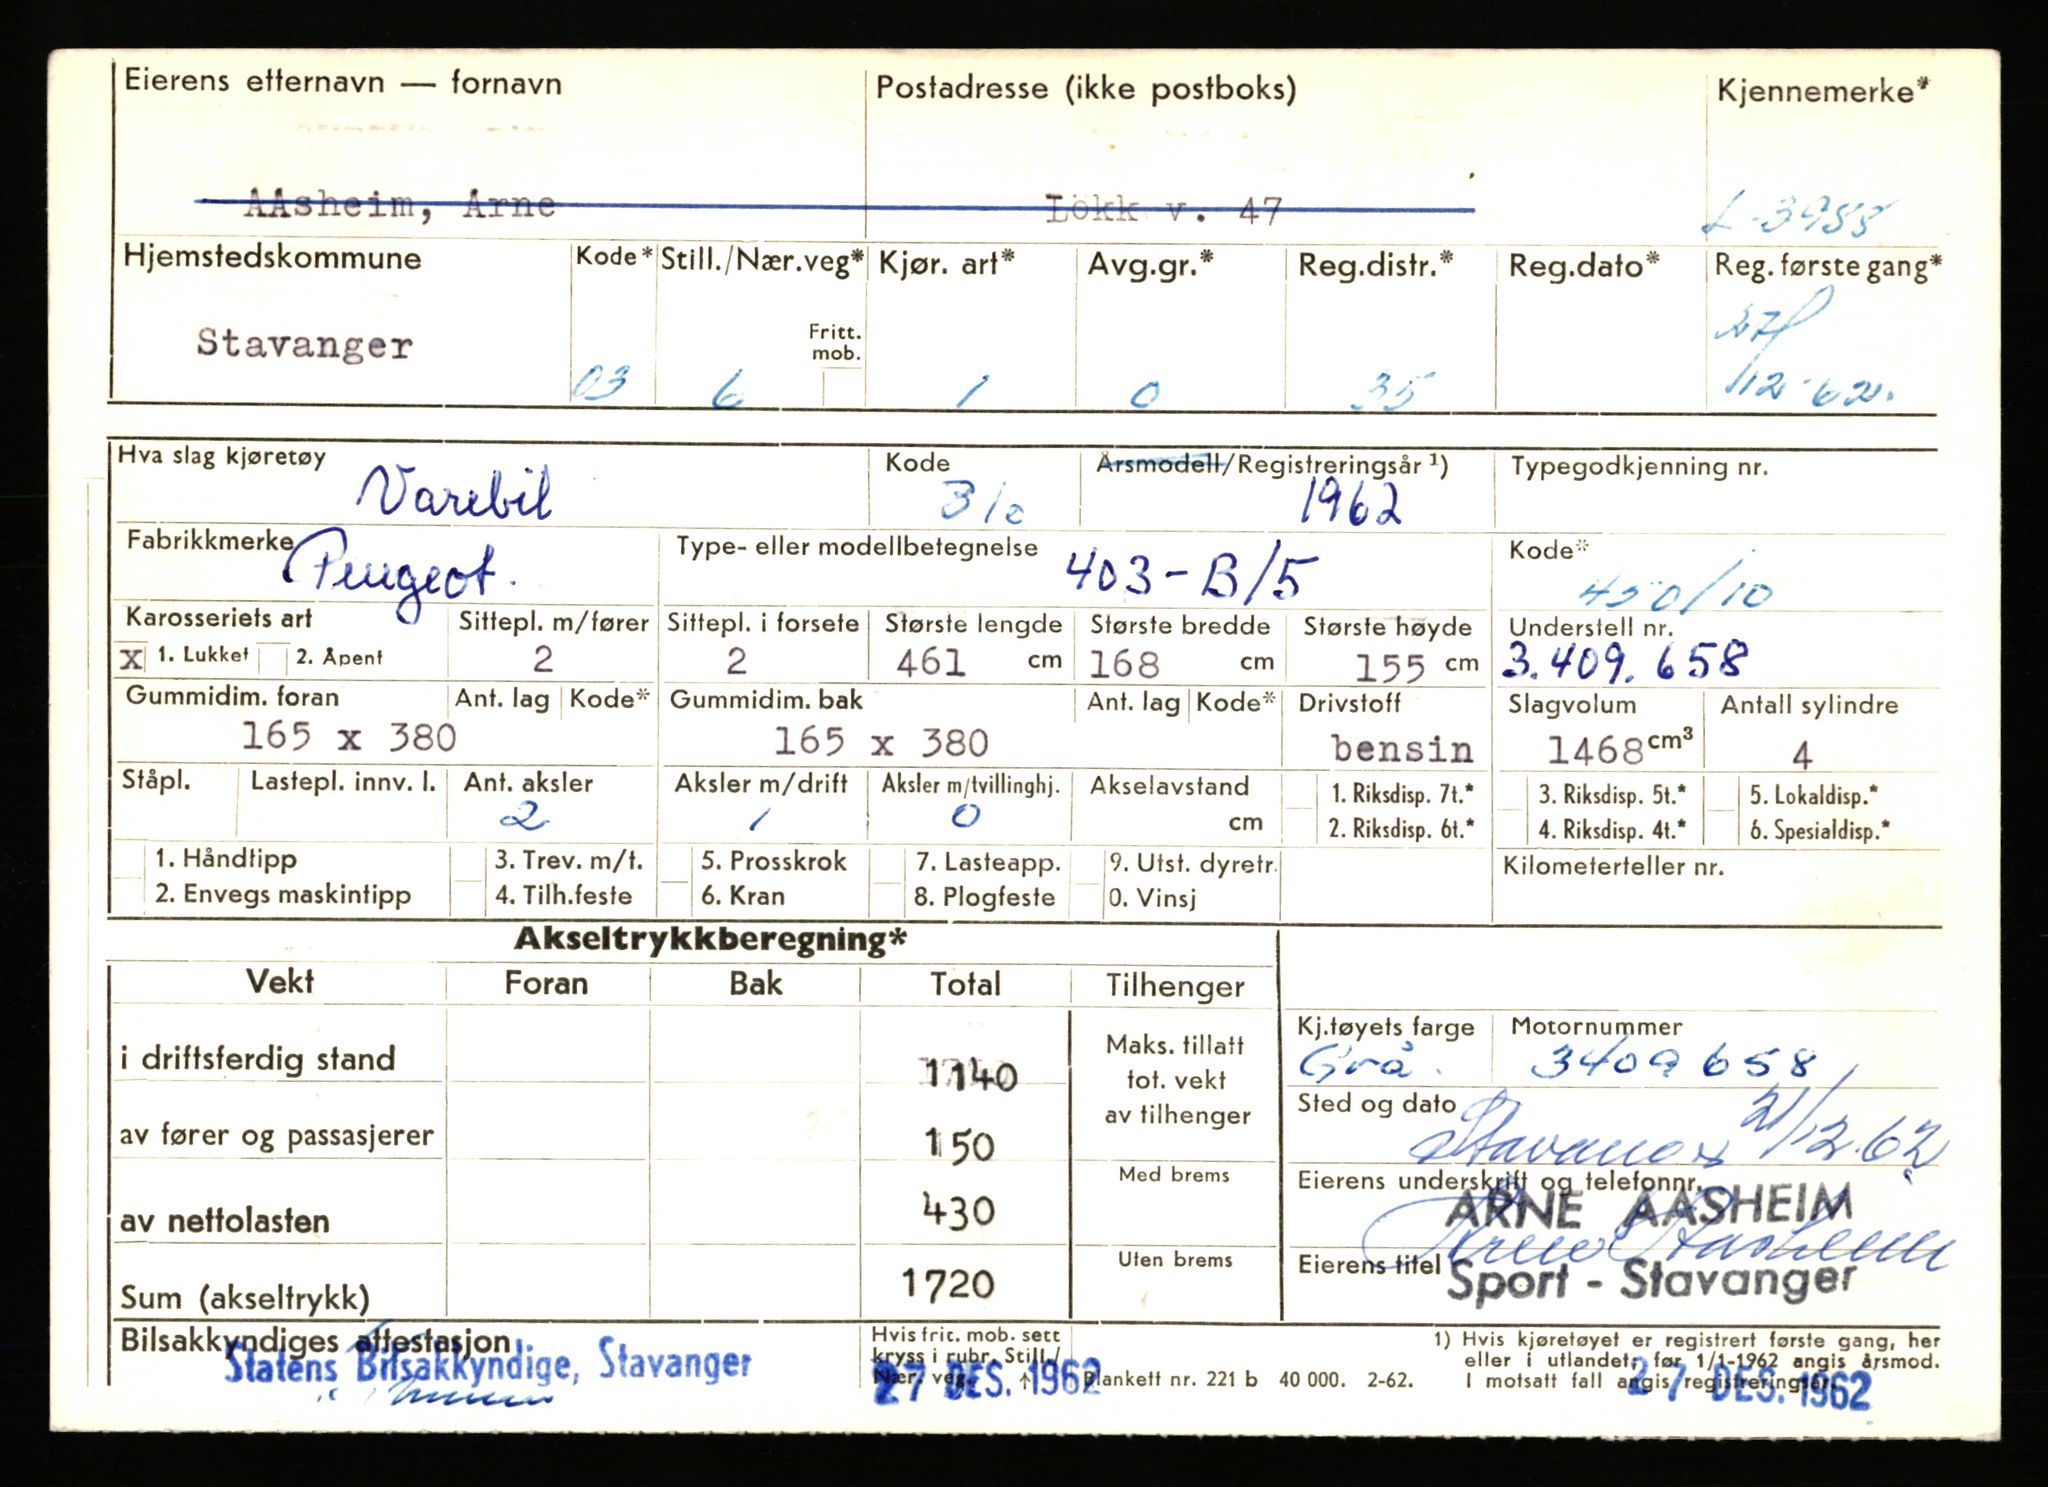 Eierens etternavn — fornavn Postadresse (ikke postboks) Kjennemerke*
AAsheim, Arne Lökk v. 47 L-3988
Hjemstedskommune Kode* Still./Nær.veg* Kjør. art* Avg.gr.* Reg.distr.* Reg.dato* Reg. første gang*
Stavanger Fritt. mob. 03 6 1 0 35 27/12-62.
Hva slag kjøretøy Kode Årsmodell/Registreringsår ¹) Typegodkjenning nr.
Varebil 31 1962
Fabrikkmerke Type- eller modellbetegnelse Kode*
Peugeot. 403-B/5 450/10
Karosseriets art Sittepl. m/fører Sittepl. i forsete Største lengde Største bredde Største høyde Understell nr.
x 1. Lukket 2. Åpent 2 2 461 cm 168 cm 155 cm 3.409.658
Gummidim. foran Ant. lag Kode* Gummidim. bak Ant. lag Kode* Drivstoff Slagvolum Antall sylindre
165 x 380 165 x 380 bensin 1468 cm³ 4
Ståpl. Lastepl. innv. l. Ant. aksler Aksler m/drift Aksler m/tvillinghj. Akselavstand 1. Riksdisp. 7t.* 3. Riksdisp. 5t.* 5. Lokaldisp.*
2 1 0 cm 2. Riksdisp. 6t.* 4. Riksdisp. 4t.* 6. Spesialdisp.*
1. Håndtipp 3. Trev. m/t. 5. Prosskrok 7. Lasteapp. 9. Utst. dyretr. Kilometerteller nr.
2. Envegs maskintipp 4. Tilh.feste 6. Kran 8. Plogfeste 0. Vinsj
Akseltrykkberegning*
Vekt Foran Bak Total Tilhenger
Kj.tøyets farge Motornummer
i driftsferdig stand 1140 Maks. tillatt tot. vekt av tilhenger Grå. 3409658
Sted og dato
av fører og passasjerer 150 Stavanger 21/12.62
Med brems Eierens underskrift og telefonnr.
av nettolasten 430 ARNE AASHEIM
Arne Aasheim
Uten brems Eierens titel Sport - Stavanger
Sum (akseltrykk) 1720
Bilsakkyndiges attestasjon Hvis frit. mob. sett kryss i rubr. Still./ Nær. veg. ↑
Statens Bilsakkyndige, Stavanger 27 DES. 1962 Blankett nr. 221 b 40 000. 2-62.
1) Hvis kjøretøyet er registrert første gang, her
eller i utlandet, før 1/1-1962 angis årsmod.
I motsatt fall angis registreringsår.
27 DES. 1962